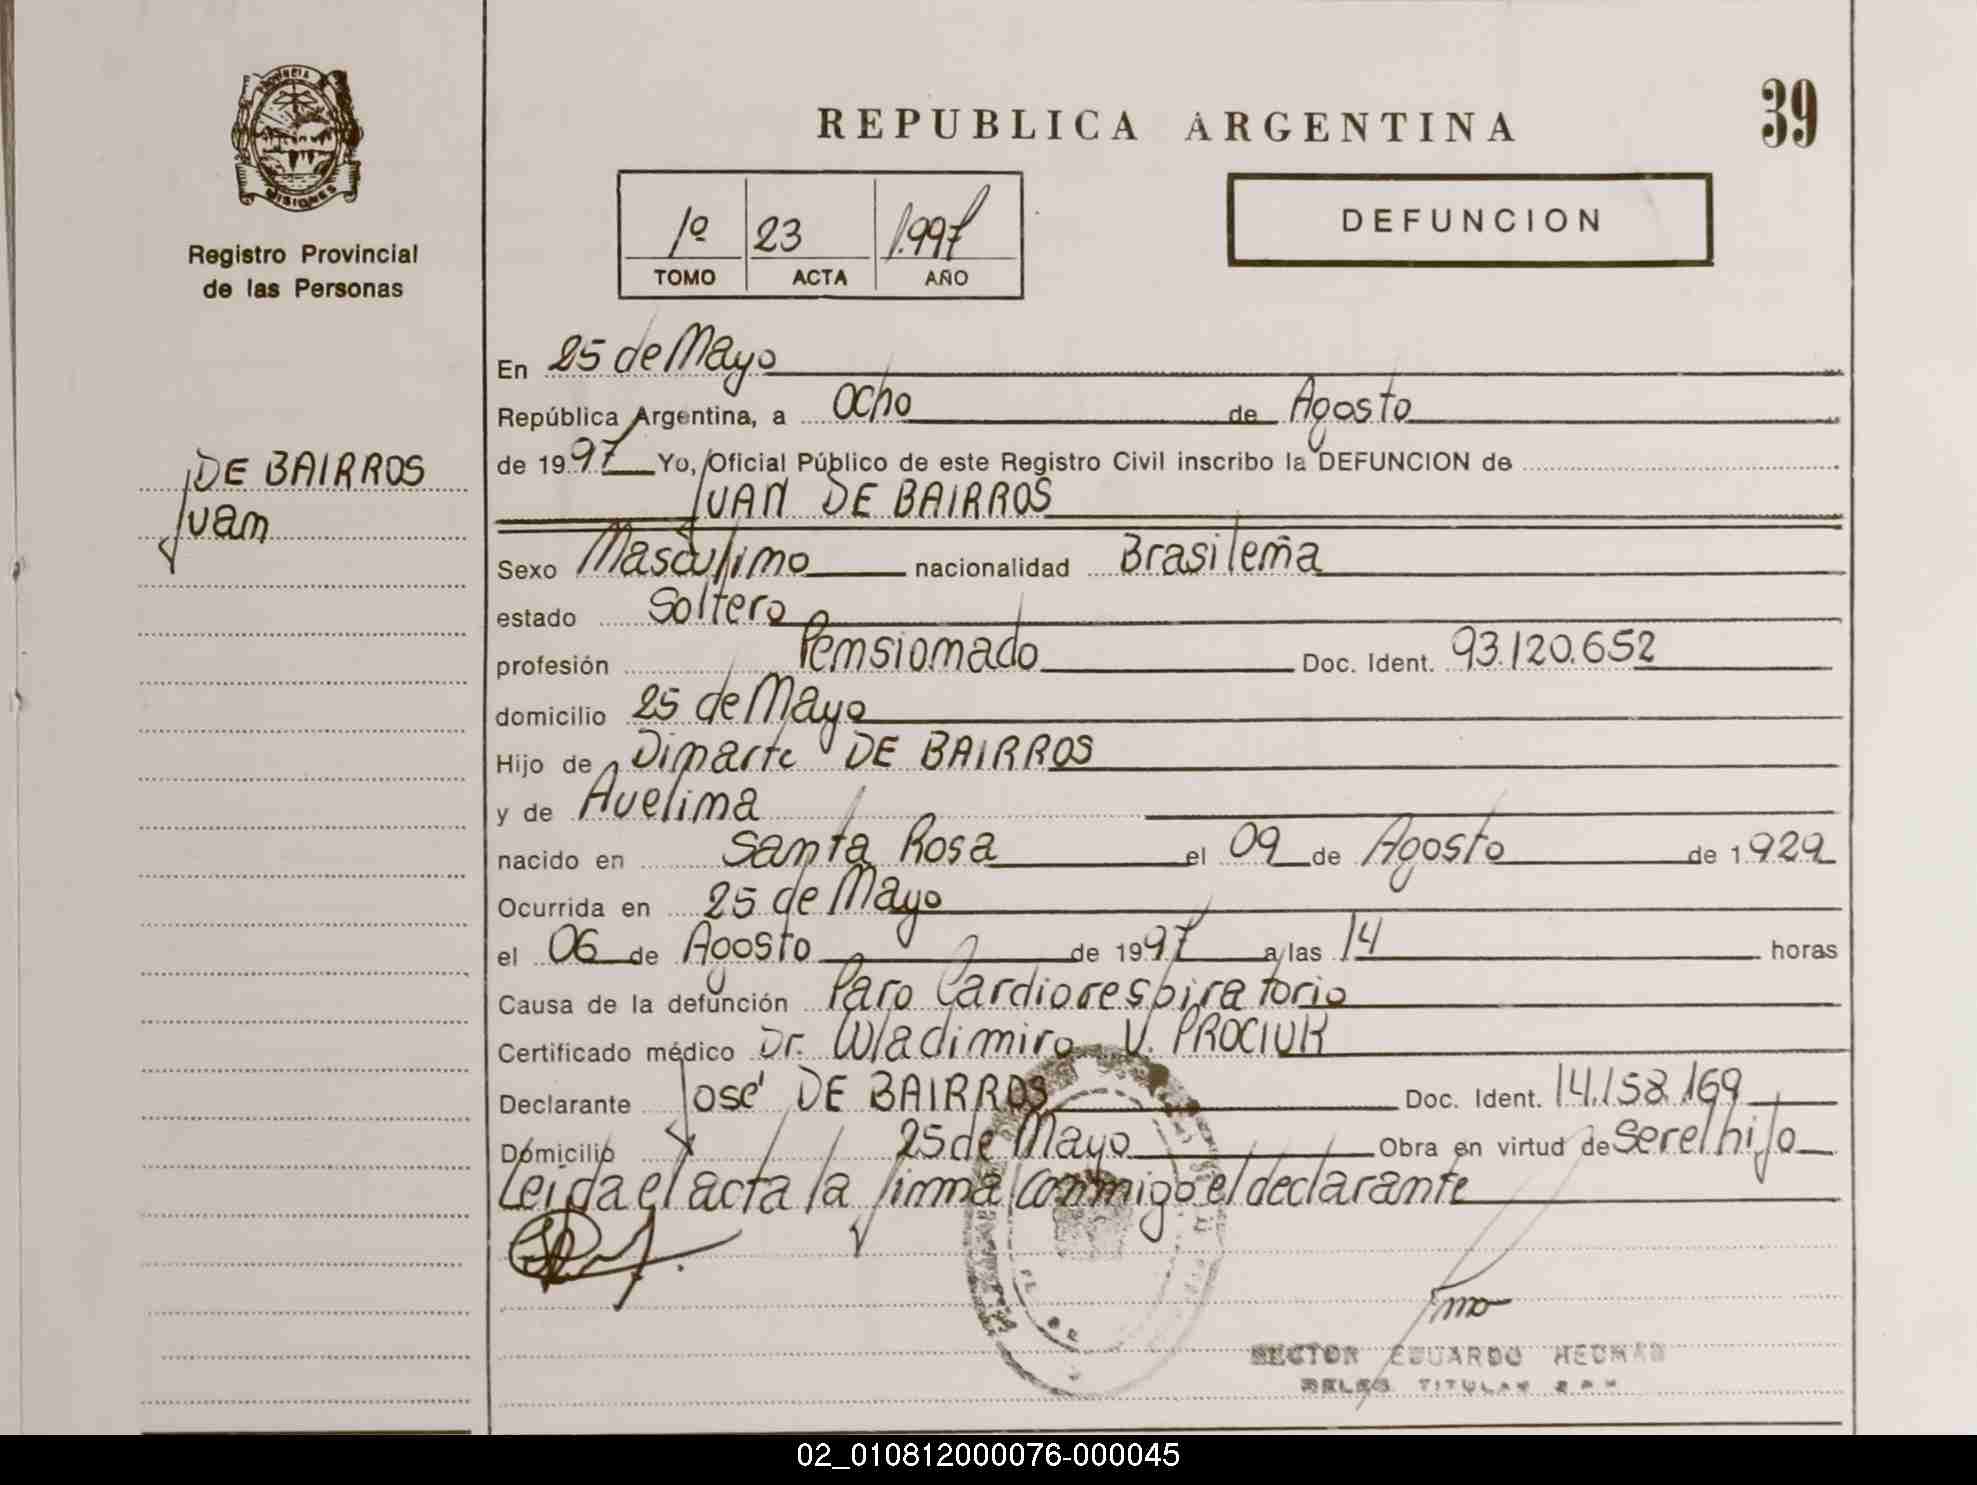 39
REPUBLICA ARGENTINA
MISIONES
Registro Provincial
de las Personas
1º 23 1.997
TOMO ACTA AÑO
DEFUNCION
DE BAIRROS
Juan
En 25 de Mayo
República Argentina, a Ocho de Agosto
de 1997 Yo, Oficial Público de este Registro Civil inscribo la DEFUNCION de
JUAN DE BAIRROS
Sexo Masculino nacionalidad Brasileña
estado Soltero
profesión Pensionado Doc. Ident. 93.120.652
domicilio 25 de Mayo
Hijo de Dinarte DE BAIRROS
y de Avelina
nacido en Santa Rosa el 09 de Agosto de 1929
Ocurrida en 25 de Mayo
el 06 de Agosto de 1997 a las 14 horas
Causa de la defunción Paro Cardiorespiratorio
Certificado médico Dr. Wladimiro V. PROCIUK
Declarante José DE BAIRROS Doc. Ident. 14.158.169
Domicilio 25 de Mayo Obra en virtud de ser el hijo
Leida el acta la firma conmigo el declarante
HECTOR EDUARDO
TITULAR
02_010812000076-000045